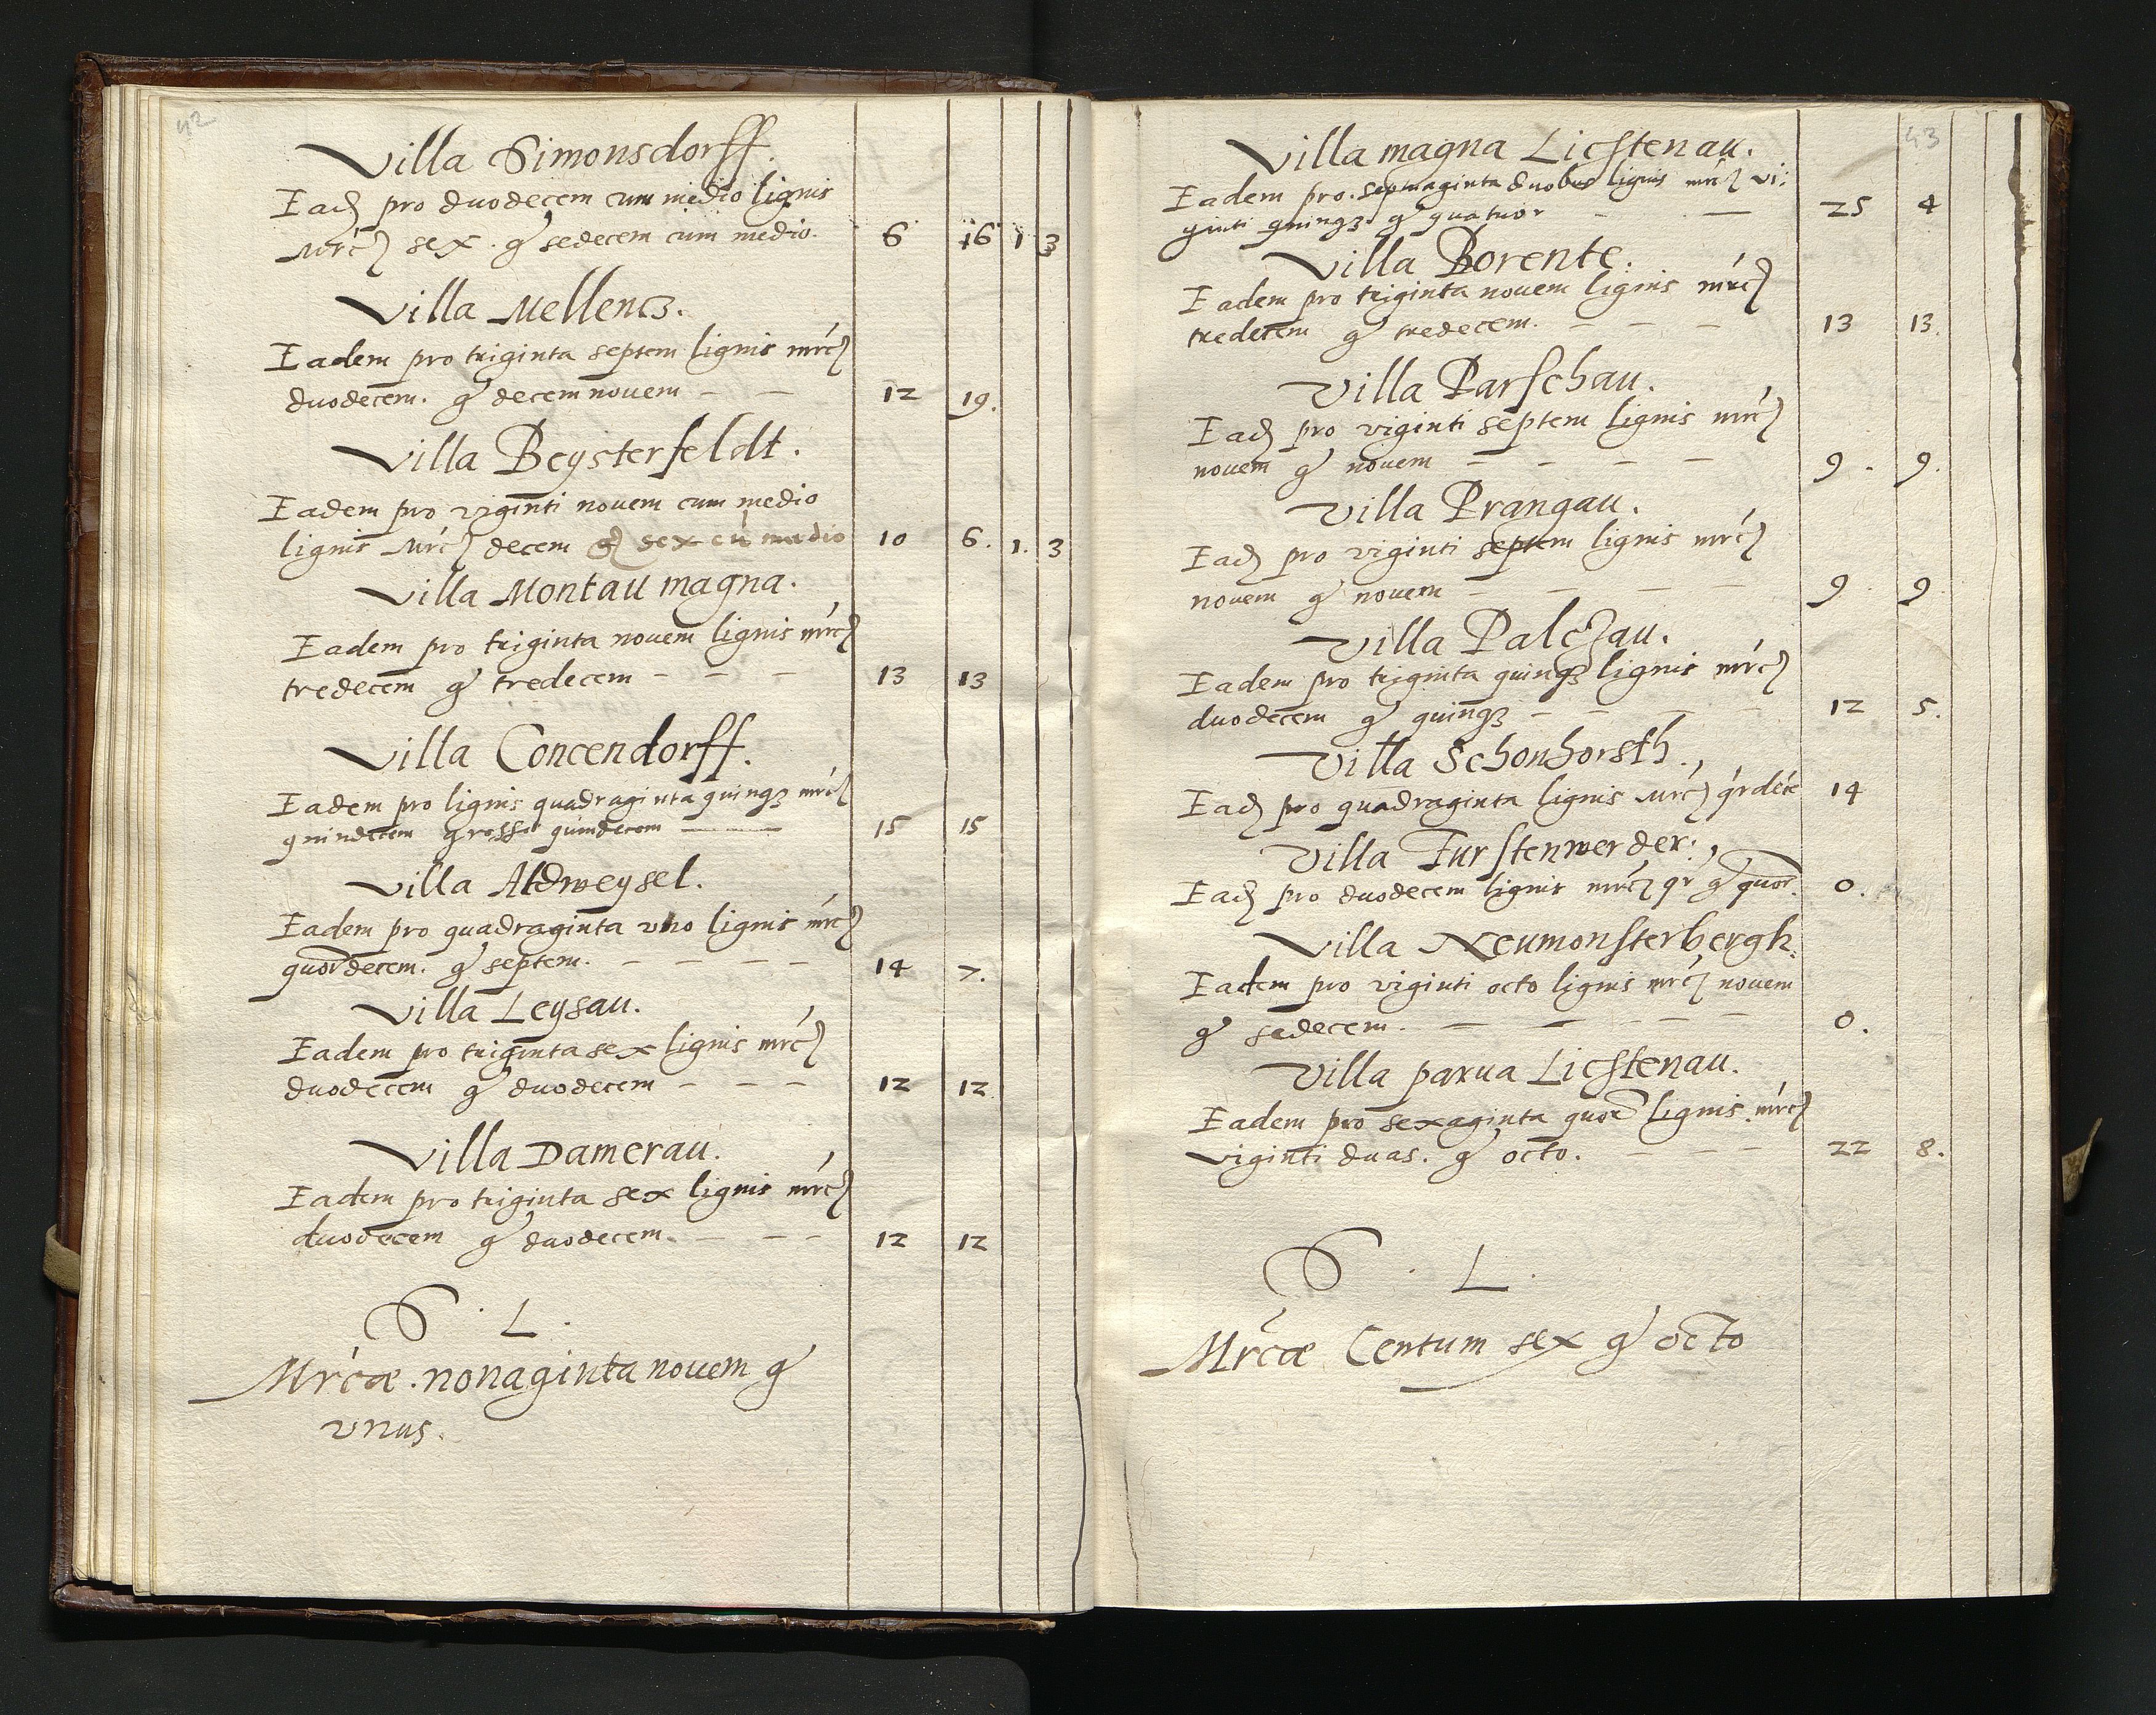 42
Villa Simonsdorff.
Iadꝫ pro duodecem cum medio lignis
Mrcꝫ sex. gͬ sedecem cum medio. 6 16 1 3
Villa Mellencz.
Iadem pro triginta septem lignis mrcꝫ
duodecem. gͬ decem novem – – 12 19.
Villa Beysterfeldt.
Iadem pro viginti novem cum medio
lignis Mrcꝫ decem gͬ sex cū medio 10 6. 1. 3
Villa Montau magna.
Iadem pro triginta novem lignis mrcꝫ
tredecem gͬ tredecem – – – 13 13
Villa Concendorff.
Iadem pro lignis quadraginta quinqꝫ mrcꝫ
quindecem grossos quindecem — 15 15
Villa Aldweysel.
Iadem pro quadraginta vno lignis mrcꝫ
quordecem. gͬ septem. – – – – 14 7.
Villa Leysau.
Iadem pro triginta sex lignis mrcꝫ
duodecem gͬ duodecem – – – 12 12
Villa Damerau.
Iadem pro triginta sex lignis mrcꝫ
duodecem gͬ duodecem. – – – 12 12
S. L.
Mrcæ. nonaginta nouem gͬ
vnus.
43
Villa magna Lichtenau.
Iadem pro. septuaginta duobus lignis mrcꝫ vi:
ginti quinqꝫ gͬ quatuor – — 25 4
Villa Borente.
Iadem pro triginta nouem lignis mrcꝫ
tredecem gͬ tredecem. – – – 13 13.
Villa Parschau.
Iadꝫ pro viginti septem lignis mrcꝫ
nouem gͬ nouem – – – – 9. 9.
Villa Prangau.
Iadꝫ pro viginti septem lignis mrcꝫ
nouem gͬ nouem – – – – 9. 9
Villa Palczau.
Iadem pro triginta quinqꝫ lignis mrcꝫ
duodecem gͬ quinqꝫ – – – – 12 5.
Villa Schonhorsth.
Iadꝫ pro quadraginta lignis Mrcꝫ qrdece 14
Villa Furstenwerder.
Iadꝫ pro duodecem lignis mrcꝫ qr gͬ quor. 0.
Villa Neumonsterbergk.
Iadem pro viginti octo lignis mrcꝫ nouem
gͬ sedecem. – – – – – 0.
Villa parua Lichtenau.
Iadem pro sexaginta quor lignis mrcꝫ
viginti duas. gͬ octo. – – – 22 8.
S. L.
Mrcæ Centum sex gͬ octo